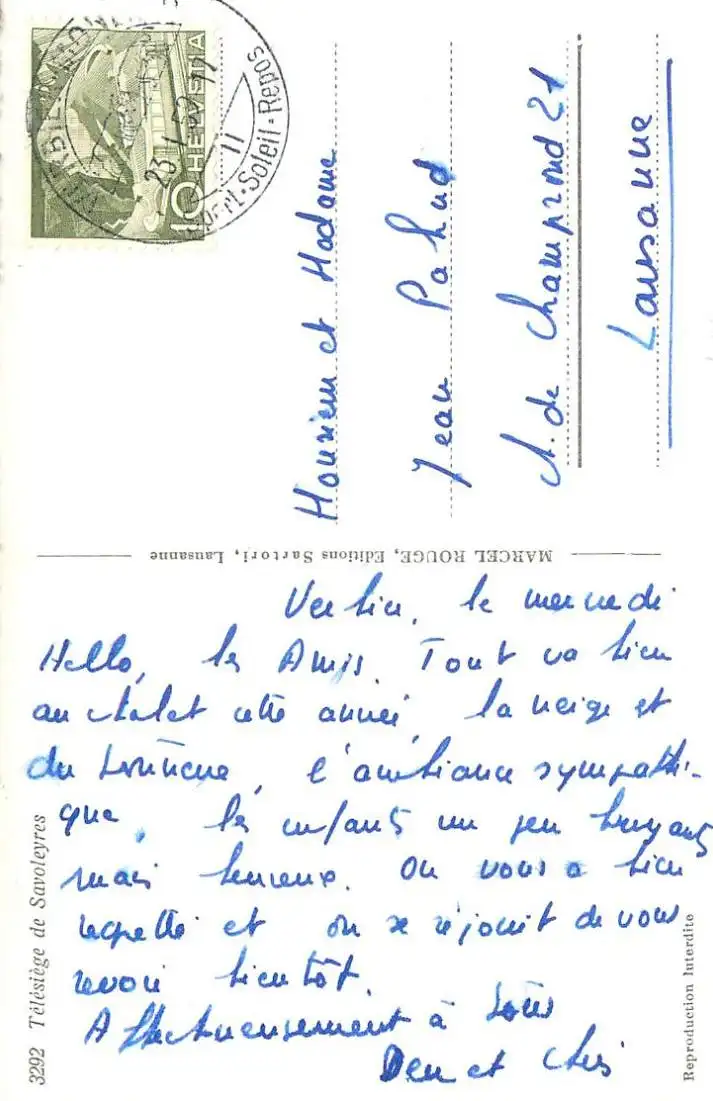 HELVETIA
10
23.1.52.11
Sport·Soleil·Repos
Monsieur et Madame
Jean Pahud
A. de Champrond 21
Lausanne
MARCEL ROUGE, Editions Sartori, Lausanne
Verbier, le mercredi
Hello, les Amis. Tout va bien
au chalet cette année, la neige est
du tonnerre, l'ambiance sympathi-
que, les enfants un peu bruyants
mais heureux. On vous a bien
regretté et on se réjouit de vous
revoir bientôt.
Affectueusement à tous
et
3292 Télésiège de Savoleyres
Reproduction Interdite